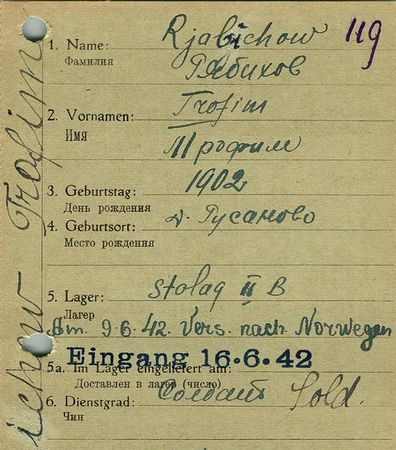 Rjabichow Trofim
119
1. Name: Rjabichow
Фамилия Рябихов
2. Vornamen: Trofim
Имя Трофим
3. Geburtstag: 1902
День рождения
4. Geburtsort: д. Русаново
Место рождения
5. Lager: Stalag II B
Лагер
Am. 9.6.42. Vers. nach Norwegen
Eingang 16.6.42
5a. Im Lager eingeliefert am:
Доставлен в лагер (число)
6. Dienstgrad: Солдат Sold.
Чин